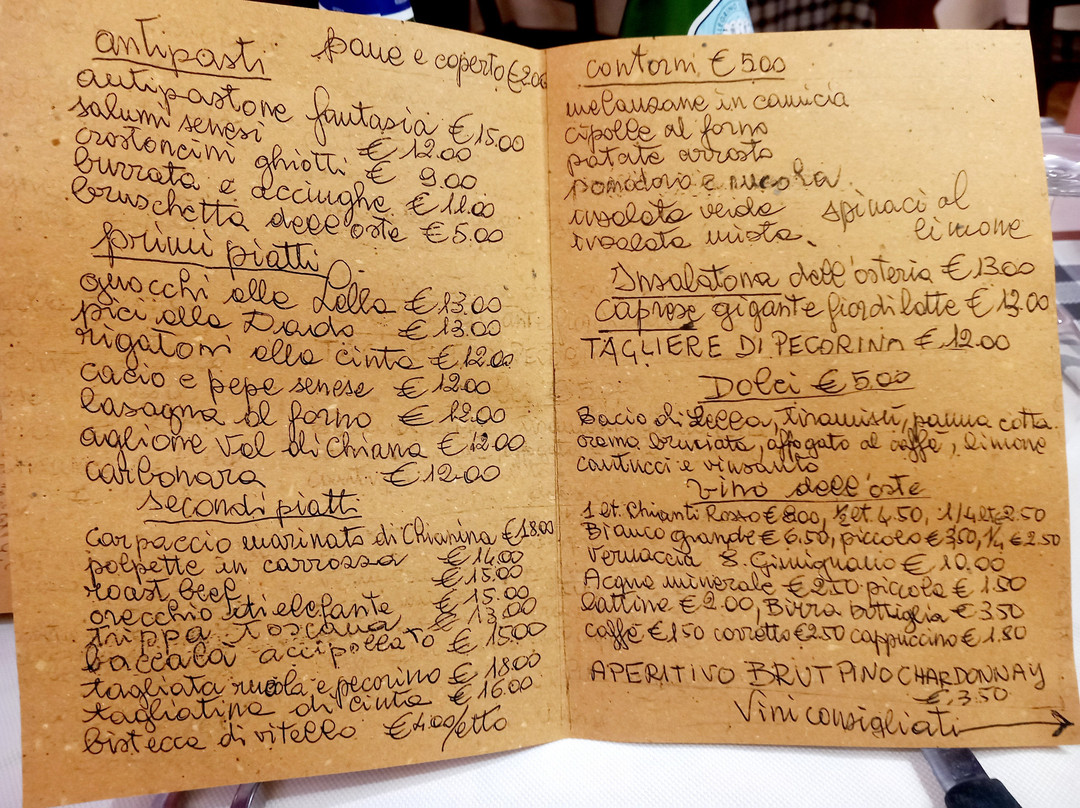 antipasti pane e coperto € 2.00
antipastone fantasia € 15.00
salumi senesi € 12.00
crostoncini ghiotti € 9.00
burrata e acciughe € 11.00
bruschetta dell'oste € 5.00
primi piatti
gnocchi alla Lella € 13.00
pici alla Dado € 13.00
rigatoni alla cinta € 12.00
cacio e pepe senese € 12.00
lasagna al forno € 12.00
aglione Val di Chiana € 12.00
carbonara € 12.00
secondi piatti
carpaccio marinato di Chianina € 18.00
polpette in carrozza € 14.00
roast beef € 15.00
orecchio di elefante € 15.00
trippa toscana € 13.00
baccalà accipollato € 15.00
tagliata rucola e pecorino € 18.00
tagliatina di cinta € 16.00
bistecca di vitello € 4.00/etto
contorni € 5.00
melanzane in camicia
cipolle al forno
patate arrosto
pomodoro e rucola
insalata verde spinaci al
insalata mista. limone
Insalatona dell'osteria € 13.00
Caprese gigante fiordilatte € 12.00
TAGLIERE DI PECORINA € 12.00
Dolci € 5.00
Bacio di Lella, tiramisù, panna cotta
crema bruciata, affogato al caffè, limone
cantucci e vinsanto
vino dell'oste
1 lt. Chianti Rosso € 8.00, ½ lt. 4.50, 1/4 lt € 2.50
Bianco grande € 6.50, piccolo € 3.50, ¼ € 2.50
Vernaccia S. Gimignano € 10.00
Acqua minerale € 2.50 piccola € 1.50
lattina € 2.00, Birra bottiglia € 3.50
caffè € 1.50 corretto € 2.50 cappuccino € 1.80
APERITIVO BRUT PINO CHARDONNAY
€ 3.50
Vini consigliati